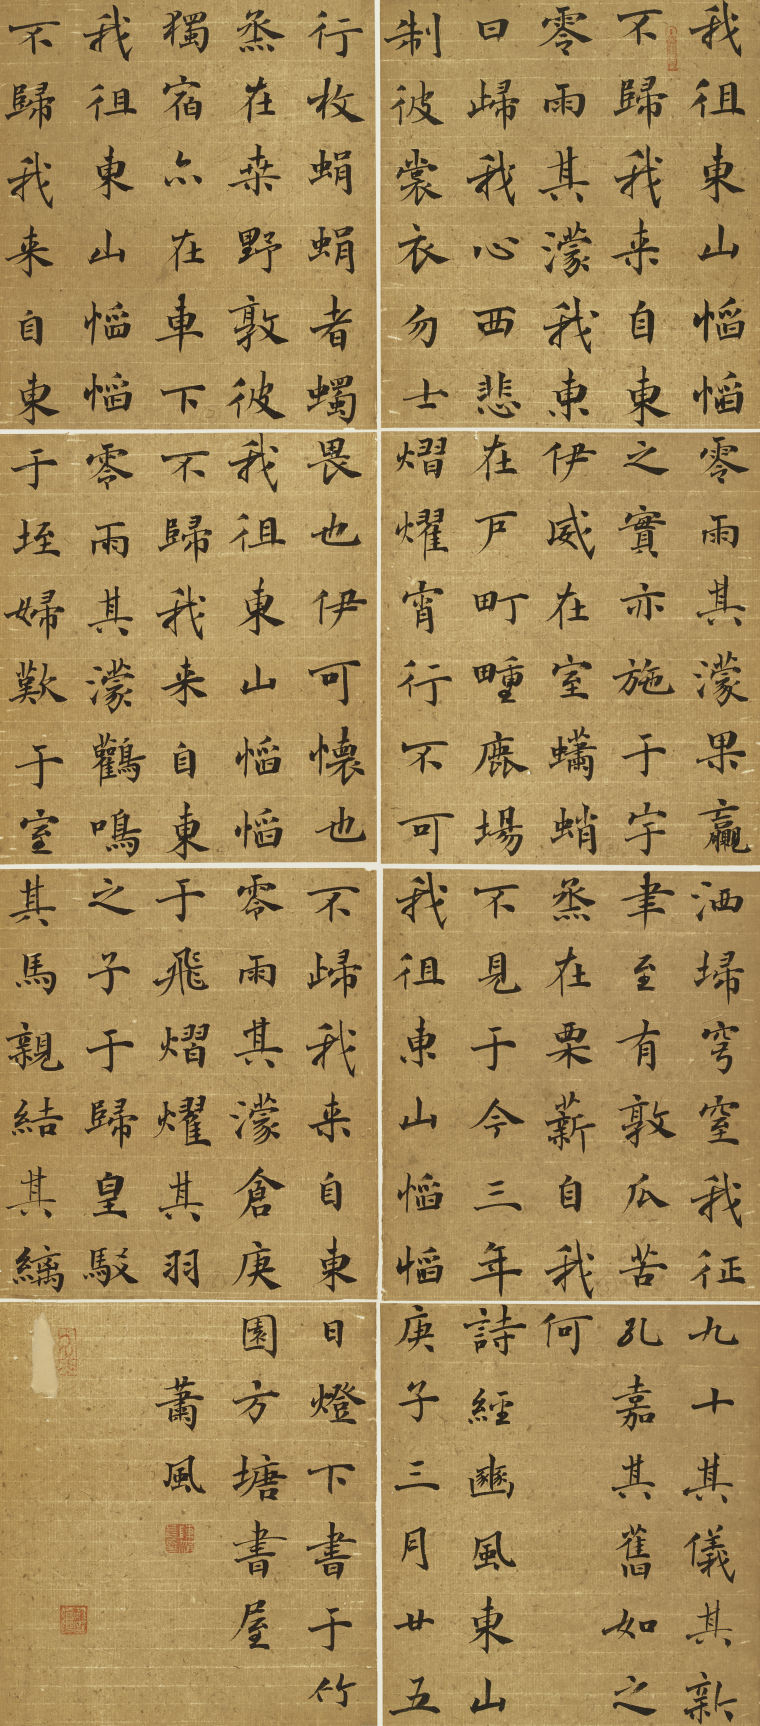 我徂東山慆慆
不歸我来自東
零雨其濛我東
曰歸我心西悲
制彼裳衣勿士
行枚蜎蜎者蠋
烝在桒野敦彼
獨宿亦在車下
我徂東山慆慆
不歸我来自東
零雨其濛果臝
之實亦施于宇
伊威在室蠨蛸
在戶町畽鹿場
熠燿宵行不可
畏也伊可懷也
我徂東山慆慆
不歸我来自東
零雨其濛鸛鳴
于垤婦歎于室
洒埽穹窒我征
聿至有敦瓜苦
烝在栗薪自我
不見于今三年
我徂東山慆慆
不歸我来自東
零雨其濛倉庚
于飛熠燿其羽
之子于歸皇駁
其馬親結其縭
九十其儀其新
孔嘉其舊如之
何
詩經豳風東山
庚子三月廿五
日燈下書于竹
園方塘書屋
蕭風